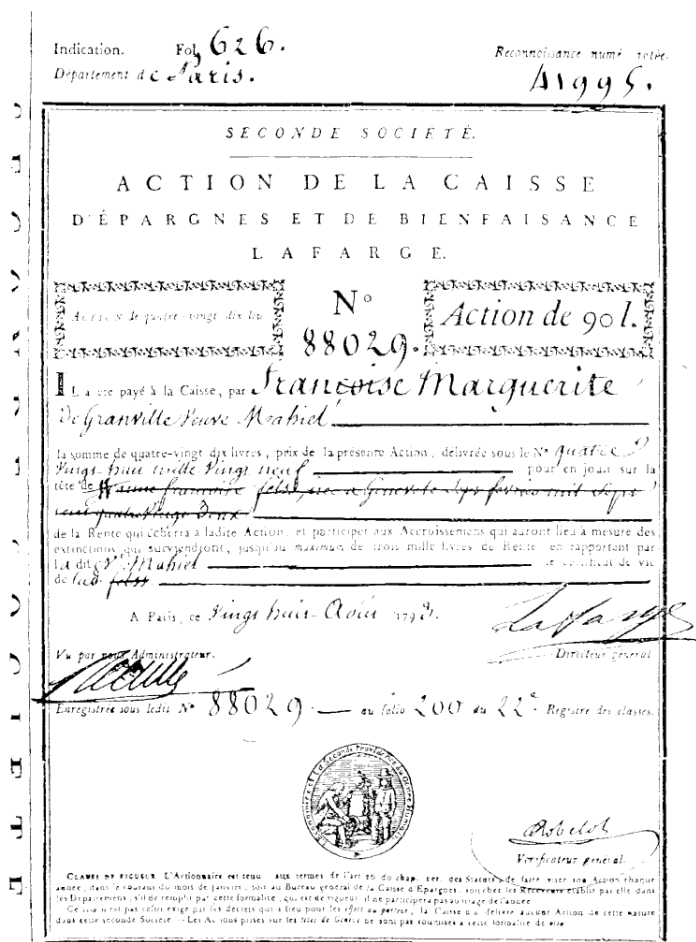 Indication. Fol. 626. Reconnoissance numérotée.
Département de Paris. 41995.
SECONDE SOCIÉTÉ.
ACTION DE LA CAISSE
D'ÉPARGNES ET DE BIENFAISANCE
LAFARGE.
Action de quatre-vingt dix liv. N° 88029. Action de 90 l.
IL a été payé à la Caisse, par Françoise Marguerite
de Granville Veuve Mahiel
la somme de quatre-vingt dix livres, prix de la présente Action, délivrée sous le N° quatre
vingt huit mille vingt neuf pour en jouir sur la
tête de
de la Rente qui écherra à ladite Action, et participer aux Accroissemens qui auront lieu à mesure des
extinctions qui surviendront, jusqu'au maximum de trois mille livres de Rente en rapportant par
La dite Ve. Mahiel le certificat de vie
de lad.
A Paris, ce Vingt huit Août 1793.
Lafarge
Vu par nous Administrateur. Directeur général
Enregistrée sous ledit N° 88029 au folio 200 du 22e. Registre des classes.
Vérificateur général.
CLAUSE DE RIGUEUR. L'Actionnaire est tenu aux termes de l'art 20 du chap. 1er. des Statuts de faire viser son Action chaque
année, dans le courant du mois de janvier, soit au Bureau général de la Caisse d'Epargnes, soit chez les Receveurs établis par elle dans
les Départemens, s'il ne remplit pas cette formalité, qui est de rigueur, il ne participera pas au tirage de l'année.
Ce visa n'est pas celui exigé par les décrets qui a lieu pour les effets au porteur, la Caisse n'a délivré aucune Action de cette nature
dans cette seconde Société. Les Actions prises sur les têtes de Genève ne sont pas soumises à cette formalité de visa